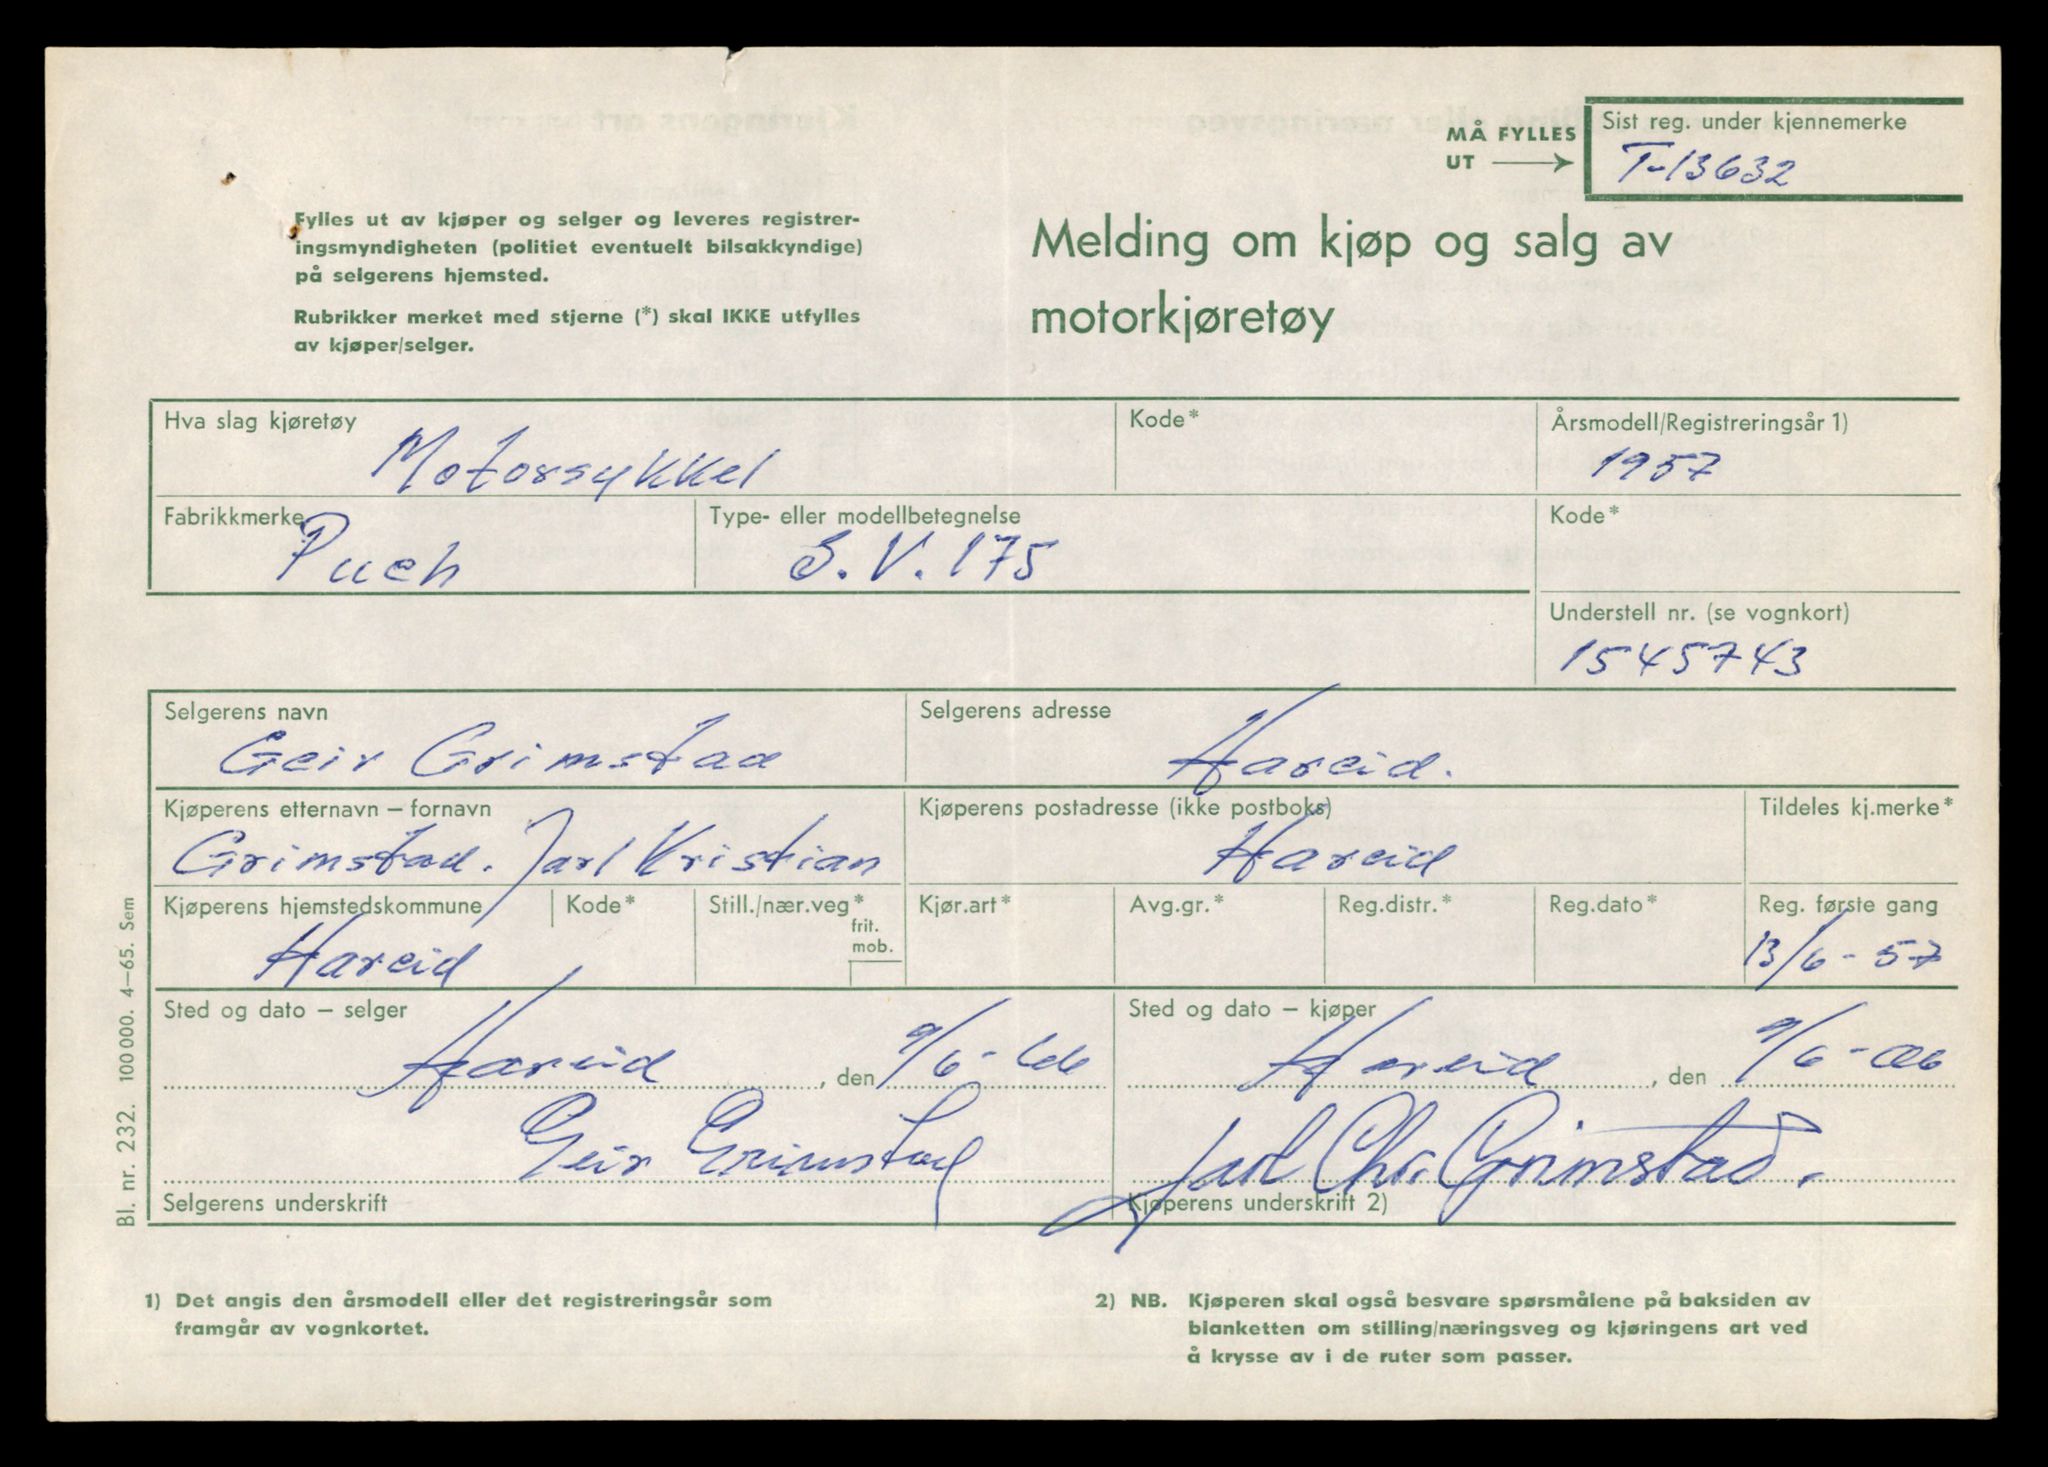 MÅ FYLLES UT
Sist reg. under kjennemerke
T-13632
Fylles ut av kjøper og selger og leveres registrer-
ingsmyndigheten (politiet eventuelt bilsakkyndige)
på selgerens hjemsted.
Rubrikker merket med stjerne (*) skal IKKE utfylles
av kjøper/selger.
Melding om kjøp og salg av
motorkjøretøy
Hva slag kjøretøy
Motorsykkel
Kode*
Årsmodell/Registreringsår 1)
1957
Fabrikkmerke
Puch
Type- eller modellbetegnelse
S.V. 175
Kode*
Understell nr. (se vognkort)
1545743
Selgerens navn
Geir Grimstad
Selgerens adresse
Hareid.
Kjøperens etternavn – fornavn
Grimstad. Jarl Kristian
Kjøperens postadresse (ikke postboks)
Hareid
Tildeles kj.merke*
Kjøperens hjemstedskommune
Hareid
Kode*
Still./nær.veg*
frit.
mob.
Kjør.art*
Avg.gr.*
Reg.distr.*
Reg.dato*
Reg. første gang
13/6-57
Sted og dato – selger
Hareid, den 9/6-66
Sted og dato – kjøper
Hareid, den 9/6-66
Geir Grimstad
Selgerens underskrift
Jarl Chr. Grimstad.
Kjøperens underskrift 2)
Bl. nr. 232. 100 000. 4–65. Sem
1) Det angis den årsmodell eller det registreringsår som
framgår av vognkortet.
2) NB. Kjøperen skal også besvare spørsmålene på baksiden av
blanketten om stilling/næringsveg og kjøringens art ved
å krysse av i de ruter som passer.